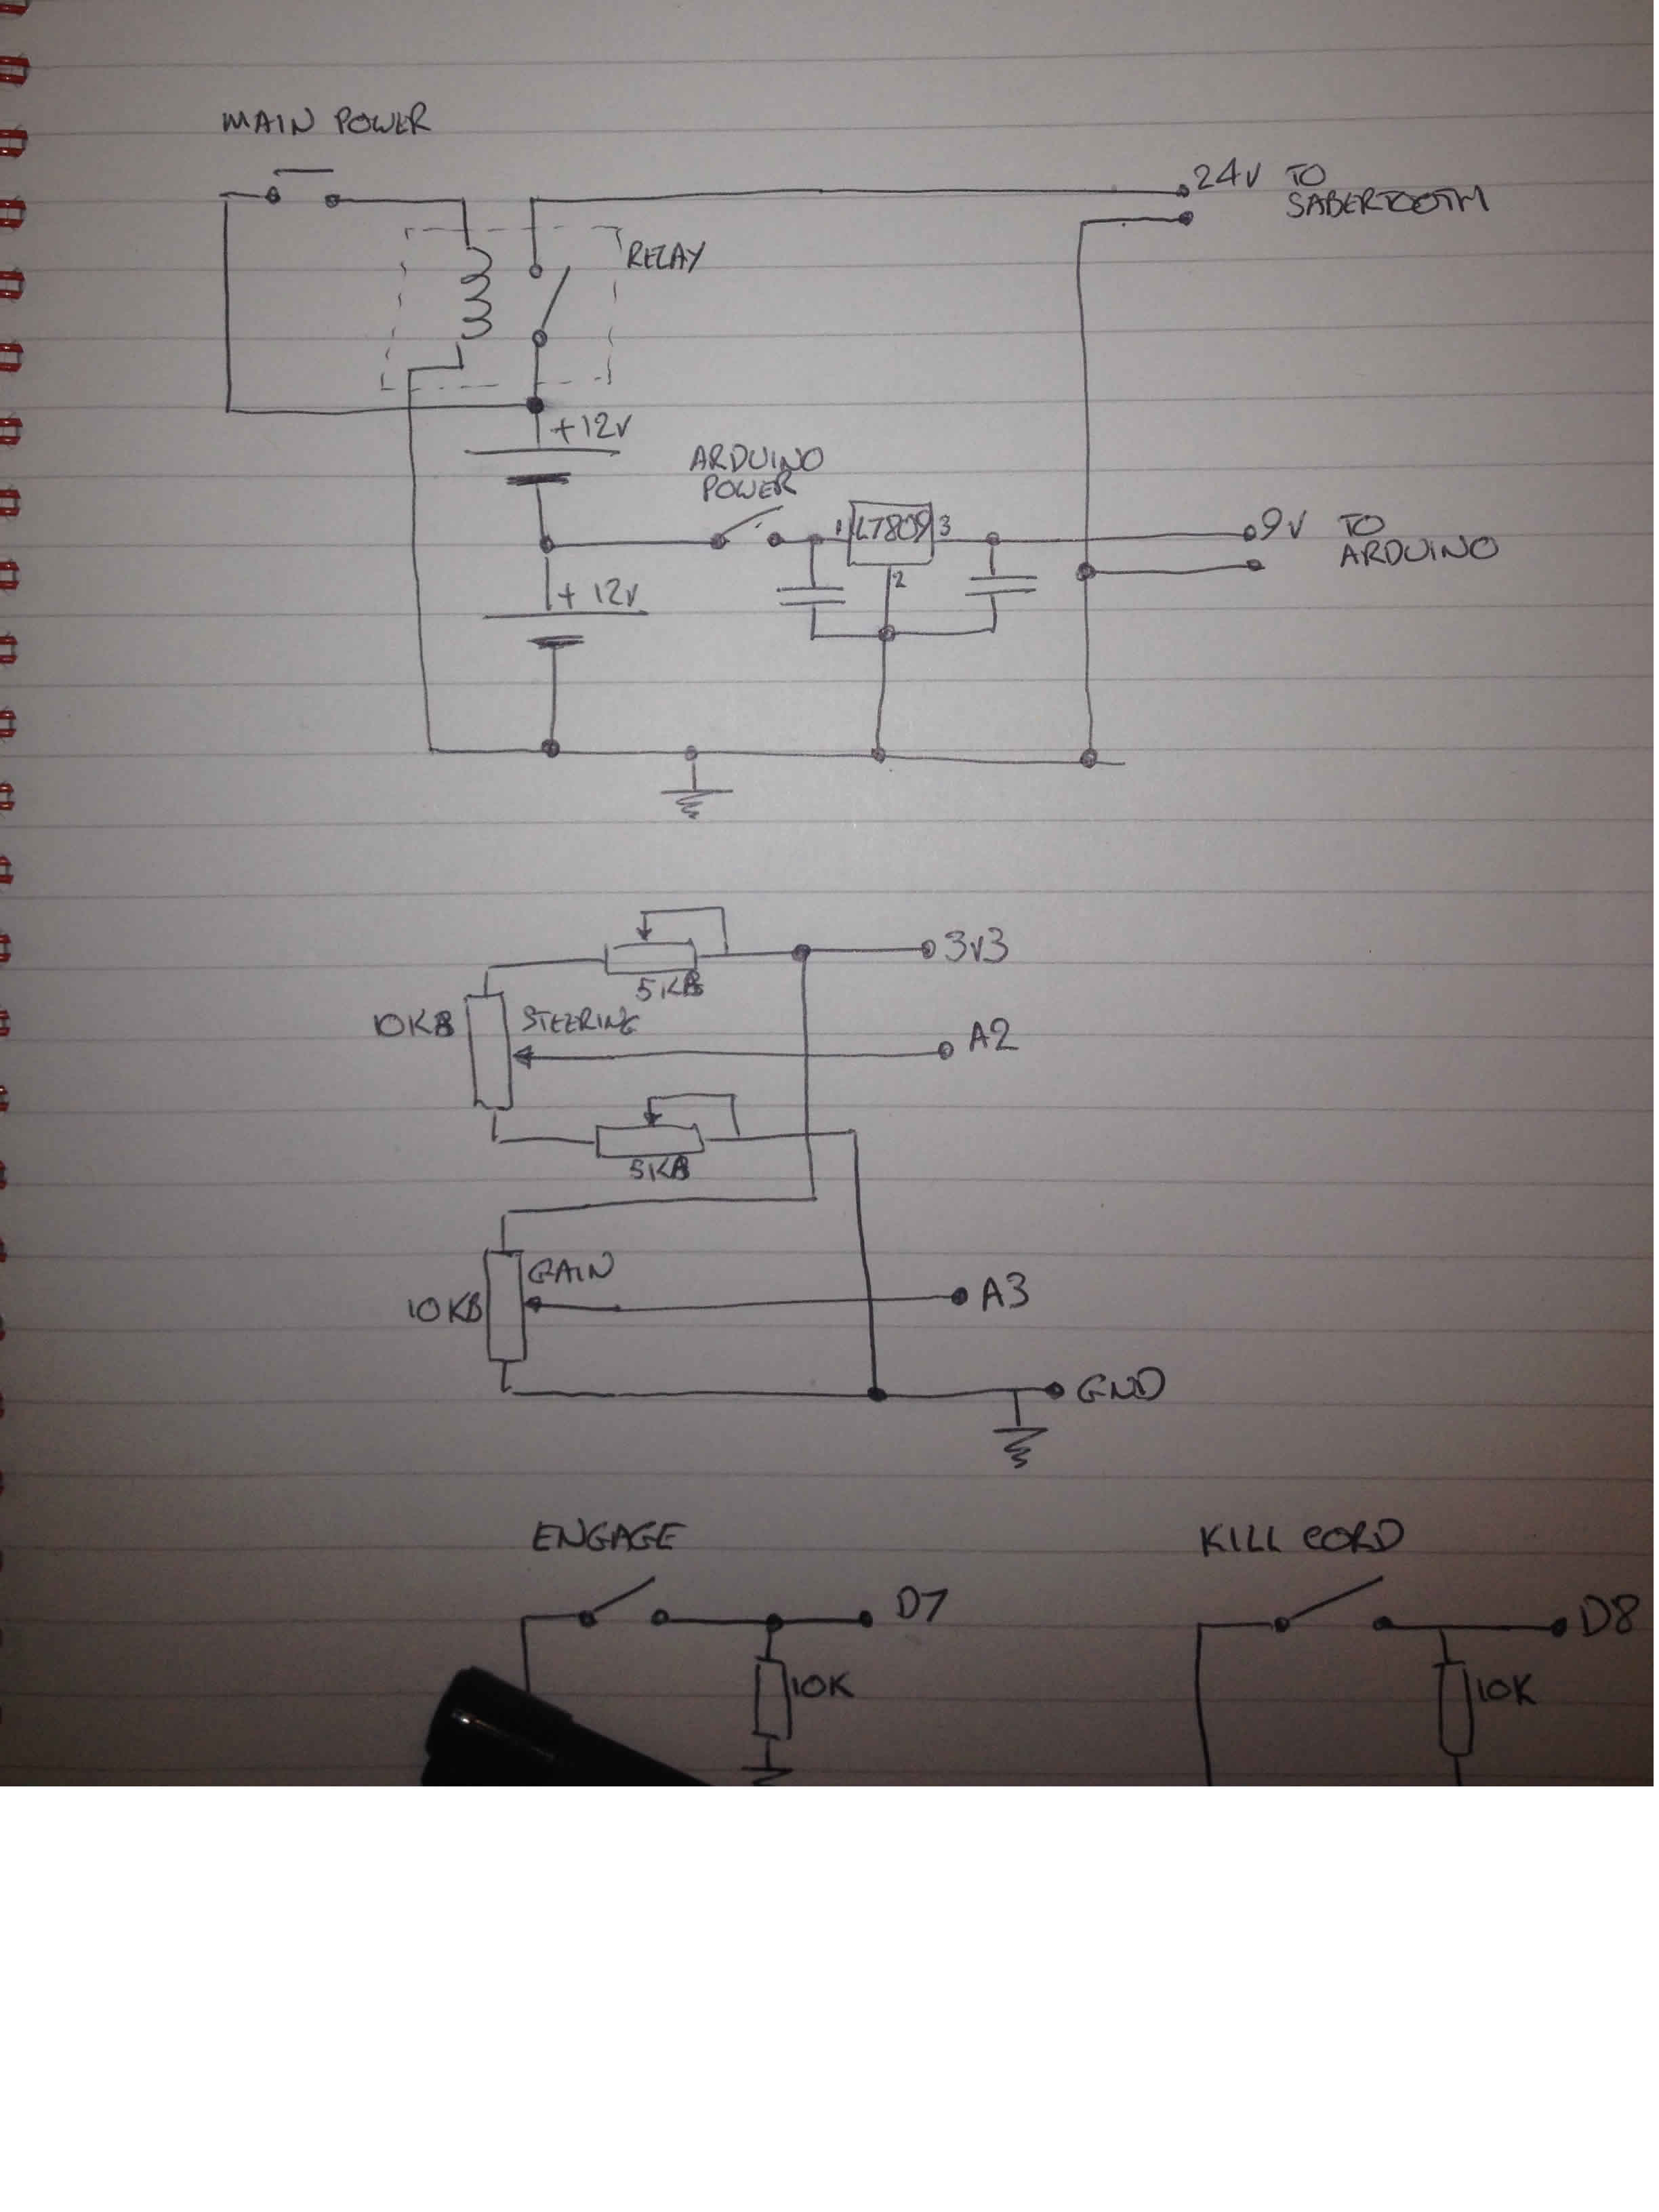 MAIN POWER
24V TO
SABERTOOTH
RELAY
+12V
ARDUINO
POWER
1 LT809 3
2
9V TO
ARDUINO
+ 12V
3v3
5KB
10KB STEERING
A2
5KB
GAIN
10KB
A3
GND
ENGAGE
KILL CORD
D7
D8
10K
10K